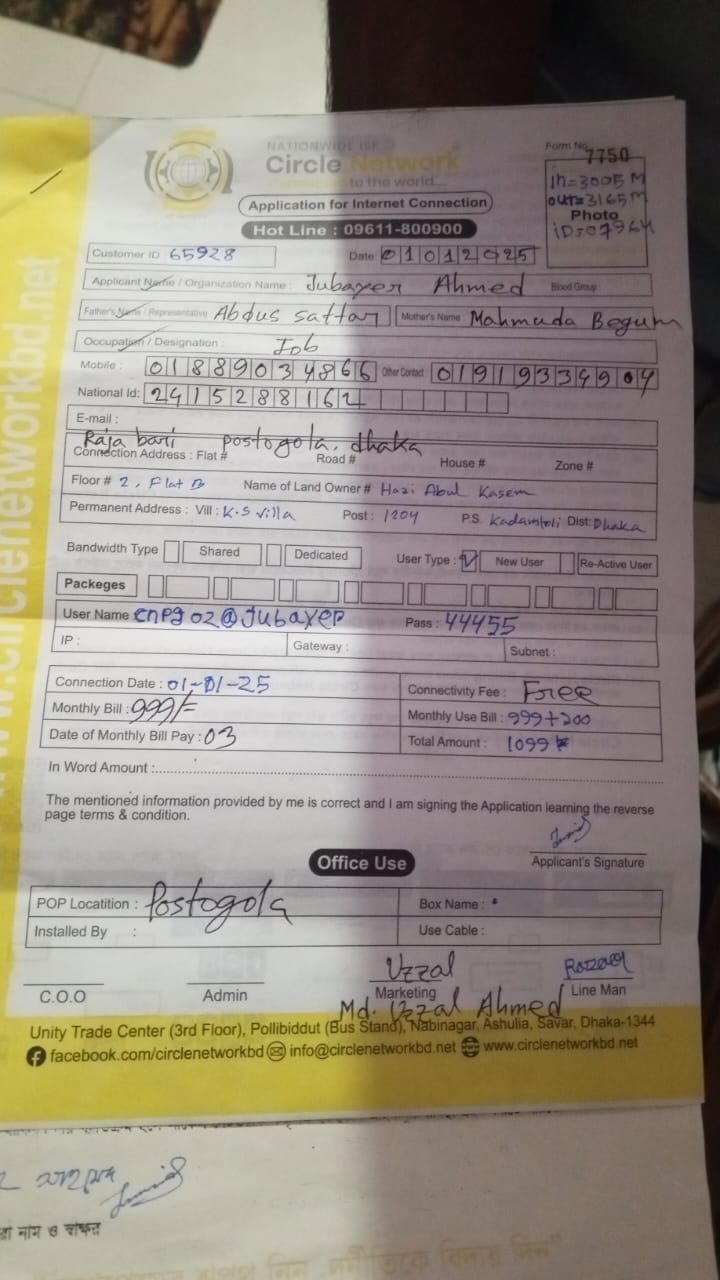 NATIONWIDE ISP
Circle Network
to the world...
Application for Internet Connection
Hot Line : 09611-800900
Form No. 7750
In=3005 M
out=3165 M
Photo
iD=07964
Customer ID 65928
Date 01012025
Applicant Name / Organization Name : Jubayer Ahmed Blood Group
Father's Name / Representative Abdus sattar Mother's Name Mahmuda Begum
Occupation / Designation : Job
Mobile : 01889034866 Other Contact 01919334904
National Id: 2415288162
E-mail :
Raja bari postogola, dhaka
Connection Address : Flat # Road # House # Zone #
Floor # 2, Flat B Name of Land Owner # Hazi Abul Kasem
Permanent Address : Vill : K.S villa Post : 1204 P.S. Kadamtoli Dist: Dhaka
Bandwidth Type Shared Dedicated User Type : New User Re-Active User
Packeges
User Name cnpg02@Jubayer Pass : 44455
IP : Gateway : Subnet :
Connection Date : 01-01-25 Connectivity Fee : Free
Monthly Bill : 999/- Monthly Use Bill : 999+200
Date of Monthly Bill Pay : 03 Total Amount : 1099
In Word Amount :
The mentioned information provided by me is correct and I am signing the Application learning the reverse
page terms & condition.
Applicant's Signature
Office Use
POP Locatition : Postogola Box Name :
Installed By : Use Cable :
Uzzal
C.O.O Admin Marketing Line Man
Md. Uzzal Ahmed
Unity Trade Center (3rd Floor), Pollibiddut (Bus Stand), Nabinagar, Ashulia, Savar, Dhaka-1344
facebook.com/circlenetworkbd info@circlenetworkbd.net www.circlenetworkbd.net
www.circlenetworkbd.net
নাম ও স্বাক্ষর